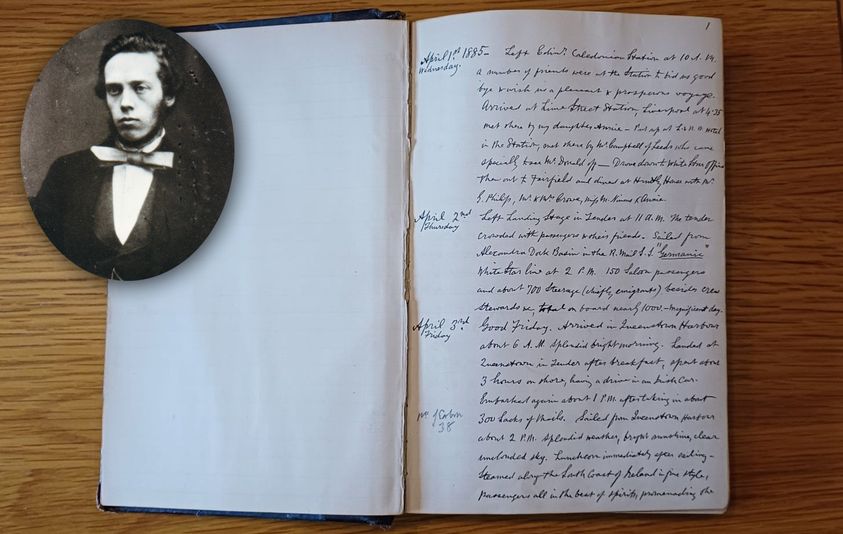 1
April 1st 1885 - Left Edinr. Caledonian Station at 10 A.M.
Wednesday.
a number of friends were at the Station to bid us good
bye & wish us a pleasant & prosperous voyage.
Arrived at Lime Street Station, Liverpool at 4.35
met there by my daughter Annie - Put up at Hotel
in the Station, met there by Mr. Campbell of Leeds who came
specially to see Mr. Donald off - Drove down to White Star Office
then out to Fairfield and dined at House with Mr
G. Philip, Mr. & Mrs Crowe, Miss M. & Annie.
April 2nd Left Landing Stage in Tender at 11 A.M. The tender
Thursday
crowded with passengers & their friends. Sailed from
Alexandra Dock Basin in the R. Mail S.S. "Germanic"
White Star line at 2 P.M. 150 Saloon passengers
and about 700 Steerage (chiefly emigrants) besides crew
stewards &c, total on board nearly 1000. - Magnificent day.
April 3rd Good Friday. Arrived in Queenstown Harbour
Friday
about 6 A.M. splendid bright morning. Landed at
Queenstown in Tender after breakfast, spent about
3 hours on shore, having a drive in an Irish Car.
Embarked again about 1 P.M. after taking in about
300 Sacks of Mails. Sailed from Queenstown Harbour
38
about 2 P.M. splendid weather, bright sunshine, clear
unclouded sky. Luncheon immediately after sailing -
Steamed along the South Coast of Ireland in fine style,
passengers all in the best of spirits, promenading the